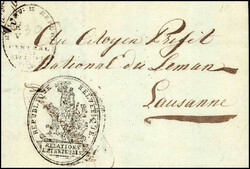 Au Citoyen Préfet
National du Leman
Lausanne
REPUBLIQUE HELVETIQUE
RELATIONS
EXTERIEURES